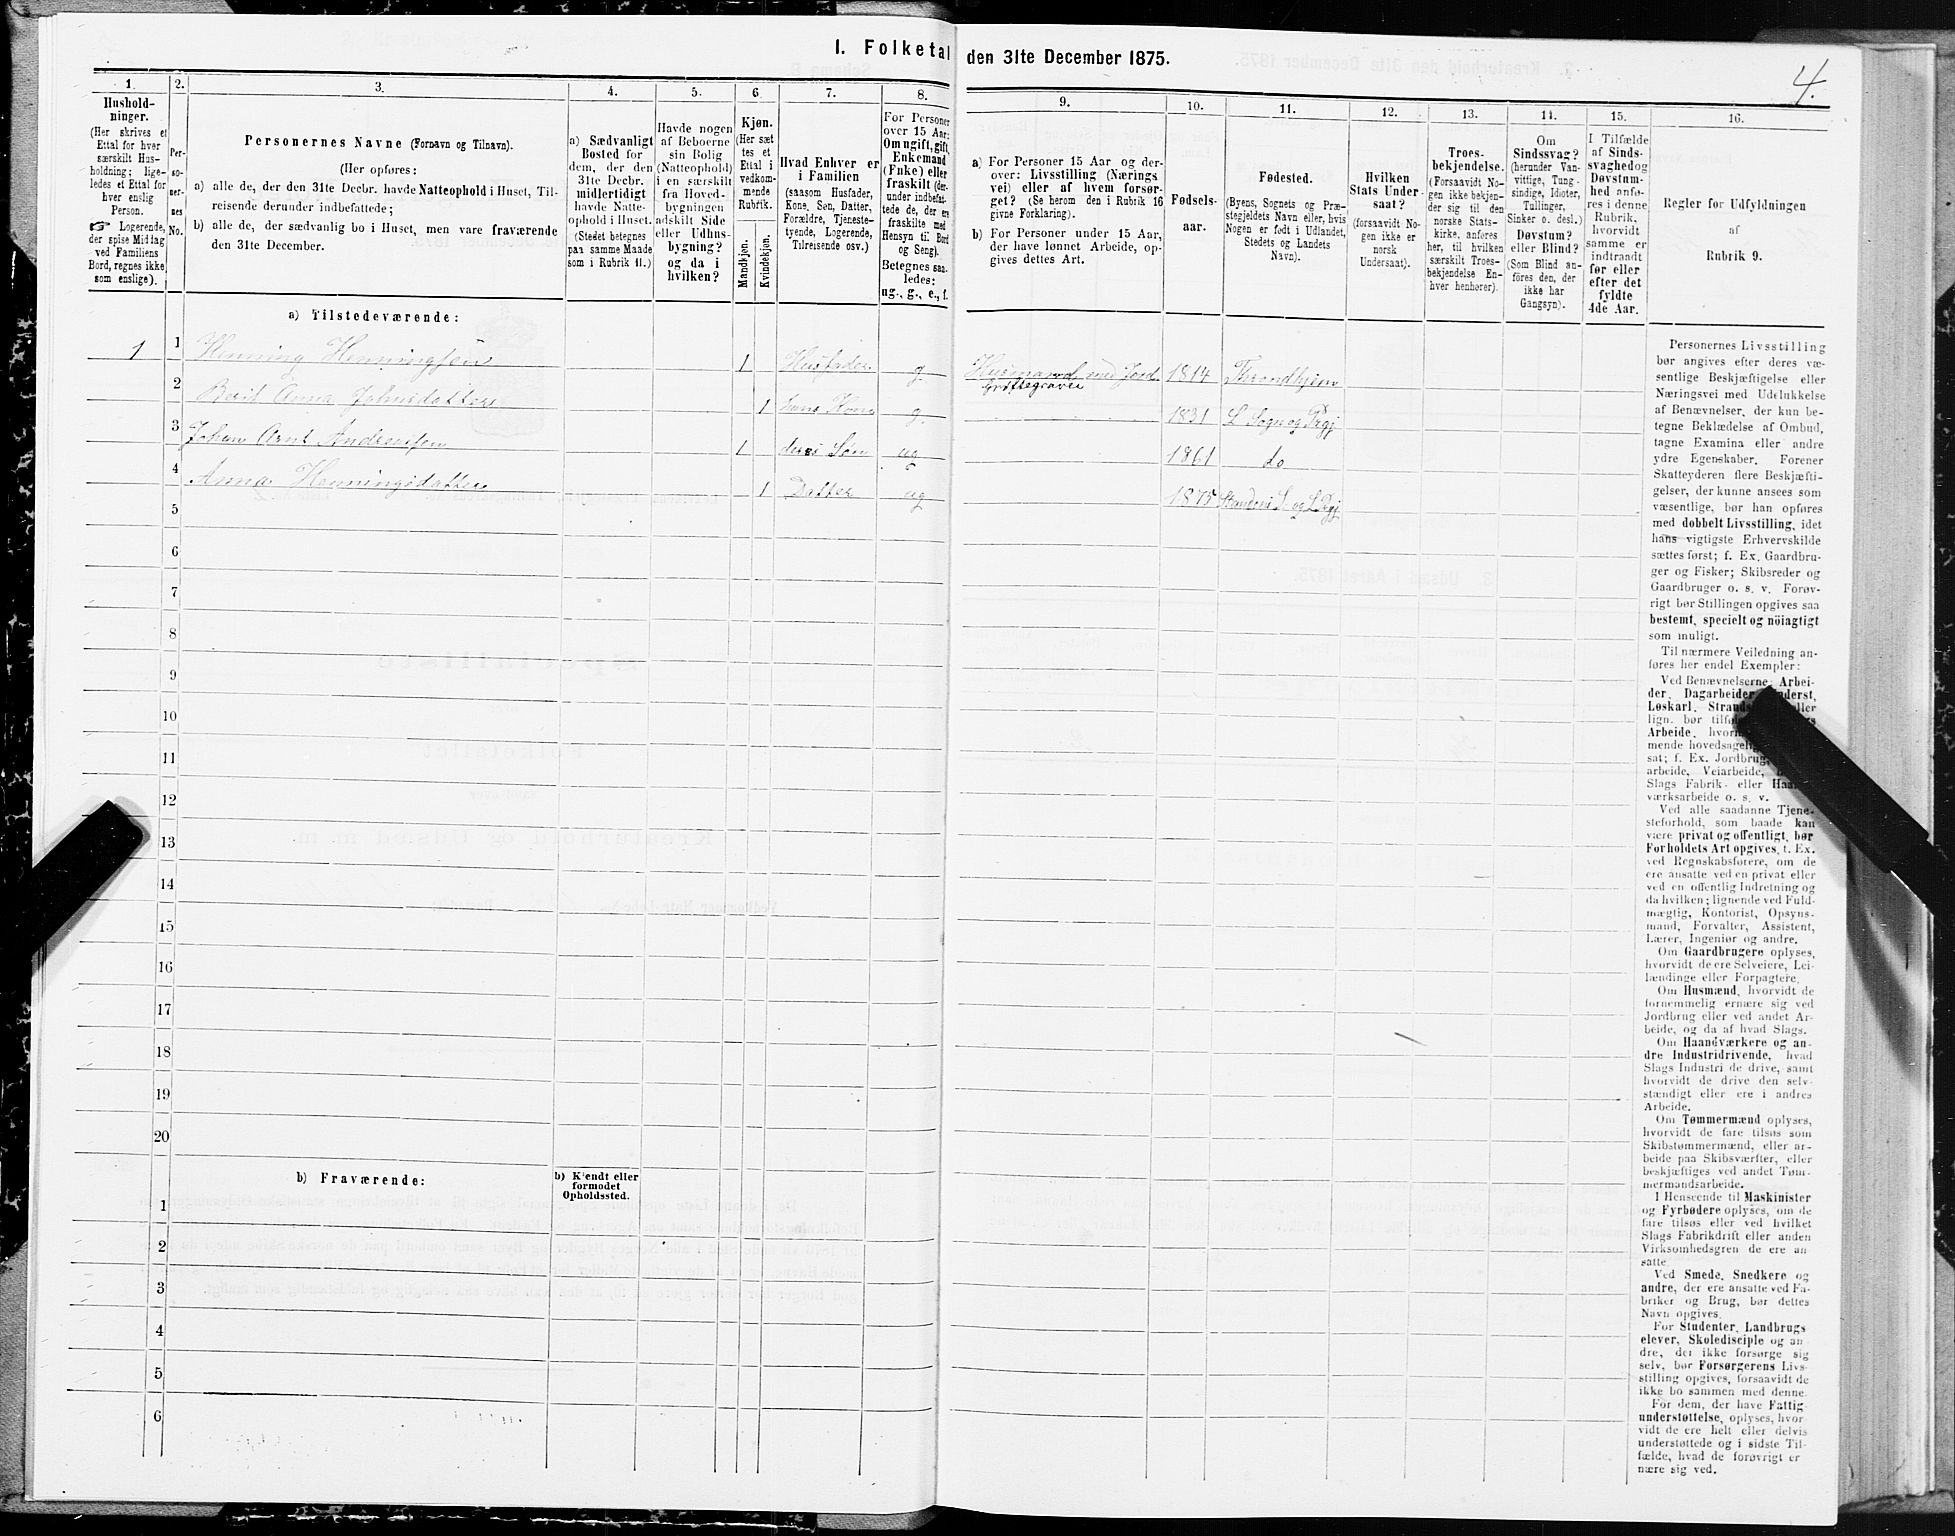 I. Folketal den 31te December 1875.
4.
1.
Hushold-
ninger.
(Her skrives et
Ettal for hver
særskilt Hus-
holdning; lige-
ledes et Ettal for
hver enslig
Person.
☞ Logerende,
der spise Middag
ved Familiens
Bord, regnes ikke
som enslige).
2.
Per-
so-
ner-
nes
No.
3.
Personernes Navne (Fornavn og Tilnavn).
(Her opføres:
a) alle de, der den 31te Decbr. havde Natteophold i Huset, Til-
reisende derunder indbefattede;
b) alle de, der sædvanlig bo i Huset, men vare fraværende
den 31te December.
4.
a) Sædvanligt
Bosted for
dem, der den
31te Decbr.
midlertidigt
havde Natte-
ophold i Huset.
(Stedet betegnes
paa samme Maade
som i Rubrik 11.)
5.
Havde nogen
af Beboerne
sin Bolig
(Natteophold)
i en særskilt
fra Hoved-
bygningen
adskilt Side
eller Udhus-
bygning?
og da i
hvilken?
6
Kjøn.
(Her sæt-
tes et
Ettal i
vedkom-
mende
Rubrik.
Mandkjøn.
Kvindekjøn.
7.
Hvad Enhver er
i Familien
(saasom Husfader,
Kone, Søn, Datter,
Forældre, Tjeneste-
tyende, Logerende,
Tilreisende osv.)
8.
For Personer
over 15 Aar:
Om ugift, gift,
Enkemand
(Enke) eller
fraskilt (der-
under indbefat-
tede de, der ere
fraskilte med
Hensyn til Bord
og Seng).
Betegnes saa-
ledes:
ug., g., e., f.
9.
a) For Personer 15 Aar og der-
over: Livsstilling (Nærings
vei) eller af hvem forsør-
get? (Se herom den i Rubrik 16
givne Forklaring).
b) For Personer under 15 Aar,
der have lønnet Arbeide, op-
gives dettes Art.
10.
Fødsels-
aar.
11.
Fødested.
(Byens, Sognets og Præ-
stegjeldets Navn eller, hvis
Nogen er født i Udlandet,
Stedets og Landets
Navn).
12.
Hvilken
Stats Under-
saat?
(forsaavidt No-
gen ikke er
norsk
Undersaat).
13.
Troes-
bekjendelse.
(Forsaavidt No-
gen ikke bekjen-
der sig til den
norske Stats-
kirke, anføres
her, til hvilken
særskilt Troes-
bekjendelse En-
hver henhører).
14.
Om
Sindssvag?
(herunder Van-
vittige, Tung-
sindige, Idioter,
Tullinger,
Sinker o. desl.)
Døvstum?
eller Blind?
(Som Blind an-
føres den, der
ikke har
Gangsyn).
15.
I Tilfælde
af Sinds-
svaghed og
Døvstum-
hed anfø-
res i denne
Rubrik,
hvorvidt
samme er
indtraadt
før eller
efter det
fyldte
4de Aar.
16.
Regler for Udfyldningen
af
Rubrik 9.
a) Tilstedeværende:
1 1 Henning Henningsen 1 Husfader g. Husmand med Jord 1814 Throndhjem
Grøftegraver
2 Berit Anna Johnsdatter 1 hans Kone g. 1831 L Sogn og Prgj
3 Johan Arnt Andreassen 1 deres Søn ug 1861 do
4 Anna Henningsdatter 1 Datter ug 1875 S og L Prgj
5
6
7
8
9
10
11
12
13
14
15
16
17
18
19
20
b) Fraværende:
b) Kjendt eller
formodet
Opholdssted.
1
2
3
4
5
6
Personernes Livsstilling
bør angives efter deres væ-
sentlige Beskjæftigelse eller
Næringsvei med Udelukkelse
af Benævnelser, der kun be-
tegne Beklædelse af Ombud,
tagne Examina eller andre
ydre Egenskaber. Forener
Skatteyderen flere Beskjæfti-
gelser, der kunne ansees som
væsentlige, bør han opføres
med dobbelt Livsstilling, idet
hans vigtigste Erhvervskilde
sættes først; f. Ex. Gaardbru-
ger og Fisker; Skibsreder og
Gaardbruger o. s. v. Forøv-
rigt bør Stillingen opgives saa
bestemt, specielt og nöiagtigt
som muligt.
Til nærmere Veiledning an-
føres her endel Exempler:
Ved Benævnelserne: Arbei-
der, Dagarbeider,
Løskarl, eller
lign. bør
Arbeide,
mende
sat; f. Ex. Jordbrug,
arbeide, Veiarbeide,
Slags Fabrik- eller
værksarbeide o. s. v.
Ved alle saadanne Tjene-
steforhold, som baade kan
være privat og offentligt, bør
Forholdets Art opgives, f. Ex.
ved Regnskabsførere, om de
ere ansatte ved en privat eller
ved en offentlig Indretning og
da hvilken; lignende ved Fuld-
mægtig, Kontorist, Opsyns-
mand, Forvalter, Assistent,
Lærer, Ingeniør og andre.
Om Gaardbrugere oplyses,
hvorvidt de ere Selveiere, Lei-
lændinge eller Forpagtere.
Om Husmænd, hvorvidt de
fornemmelig ernære sig ved
Jordbrug eller ved andet Ar-
beide, og da af hvad Slags.
Om Haandværkere og an-
dre Industridrivende, hvad
Slags Industri de drive, samt
hvorvidt de drive den selv-
stændigt eller ere i andres
Arbeide.
Om Tømmermænd oplyses,
hvorvidt de fare tilsøs som
Skibstømmermænd, eller ar-
beide paa Skibsværfter, eller
beskjæftiges ved andet Tøm-
mermandsarbeide.
I Henseende til Maskinister
og Fyrbødere oplyses, om de
fare tilsøs eller ved hvilket
Slags Fabrikdrift eller anden
Virksomhedsgren de ere an-
satte.
Ved Smede, Snedkere og
andre, der ere ansatte ved Fa-
briker og Brug, bør dettes
Navn opgives.
For Studenter, Landbrugs-
elever, Skoledisciple og an-
dre, der ikke forsørge sig
selv, bør Forsørgerens Livs-
stilling opgives, forsaavidt de
ikke bo sammen med denne.
For dem, der have Fattig-
understøttelse, oplyses, hvor-
vidt de ere helt eller delvis
understøttede og i sidste Til-
fælde, hvad de forøvrigt er
nære sig ved.